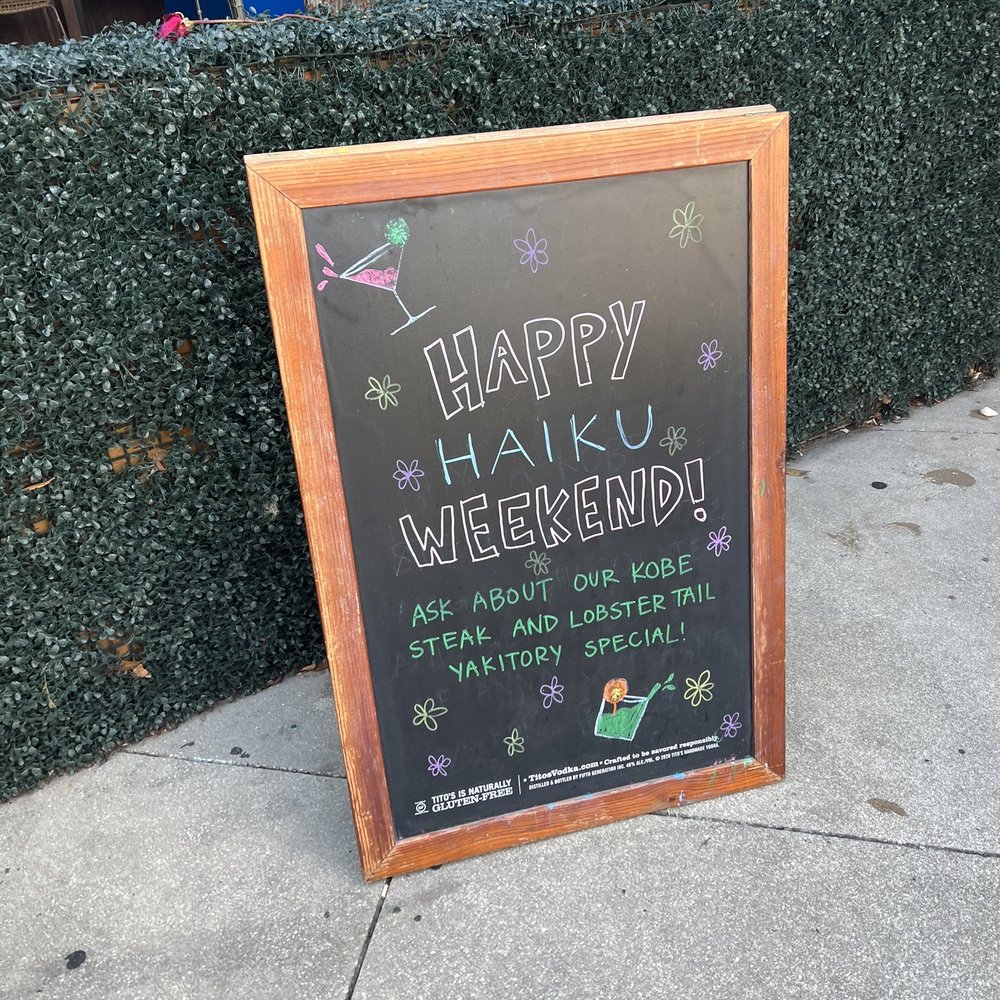 HAPPY
HAIKU
WEEKEND!
ASK ABOUT OUR KOBE
STEAK AND LOBSTER TAIL
YAKITORY SPECIAL!
TITO'S IS NATURALLY
GLUTEN-FREE
• TitosVodka.com • Crafted to be savored responsibly.
DISTILLED & BOTTLED BY FIFTH GENERATION INC. 40% ALC./VOL. © 2020 TITO'S HANDMADE VODKA.